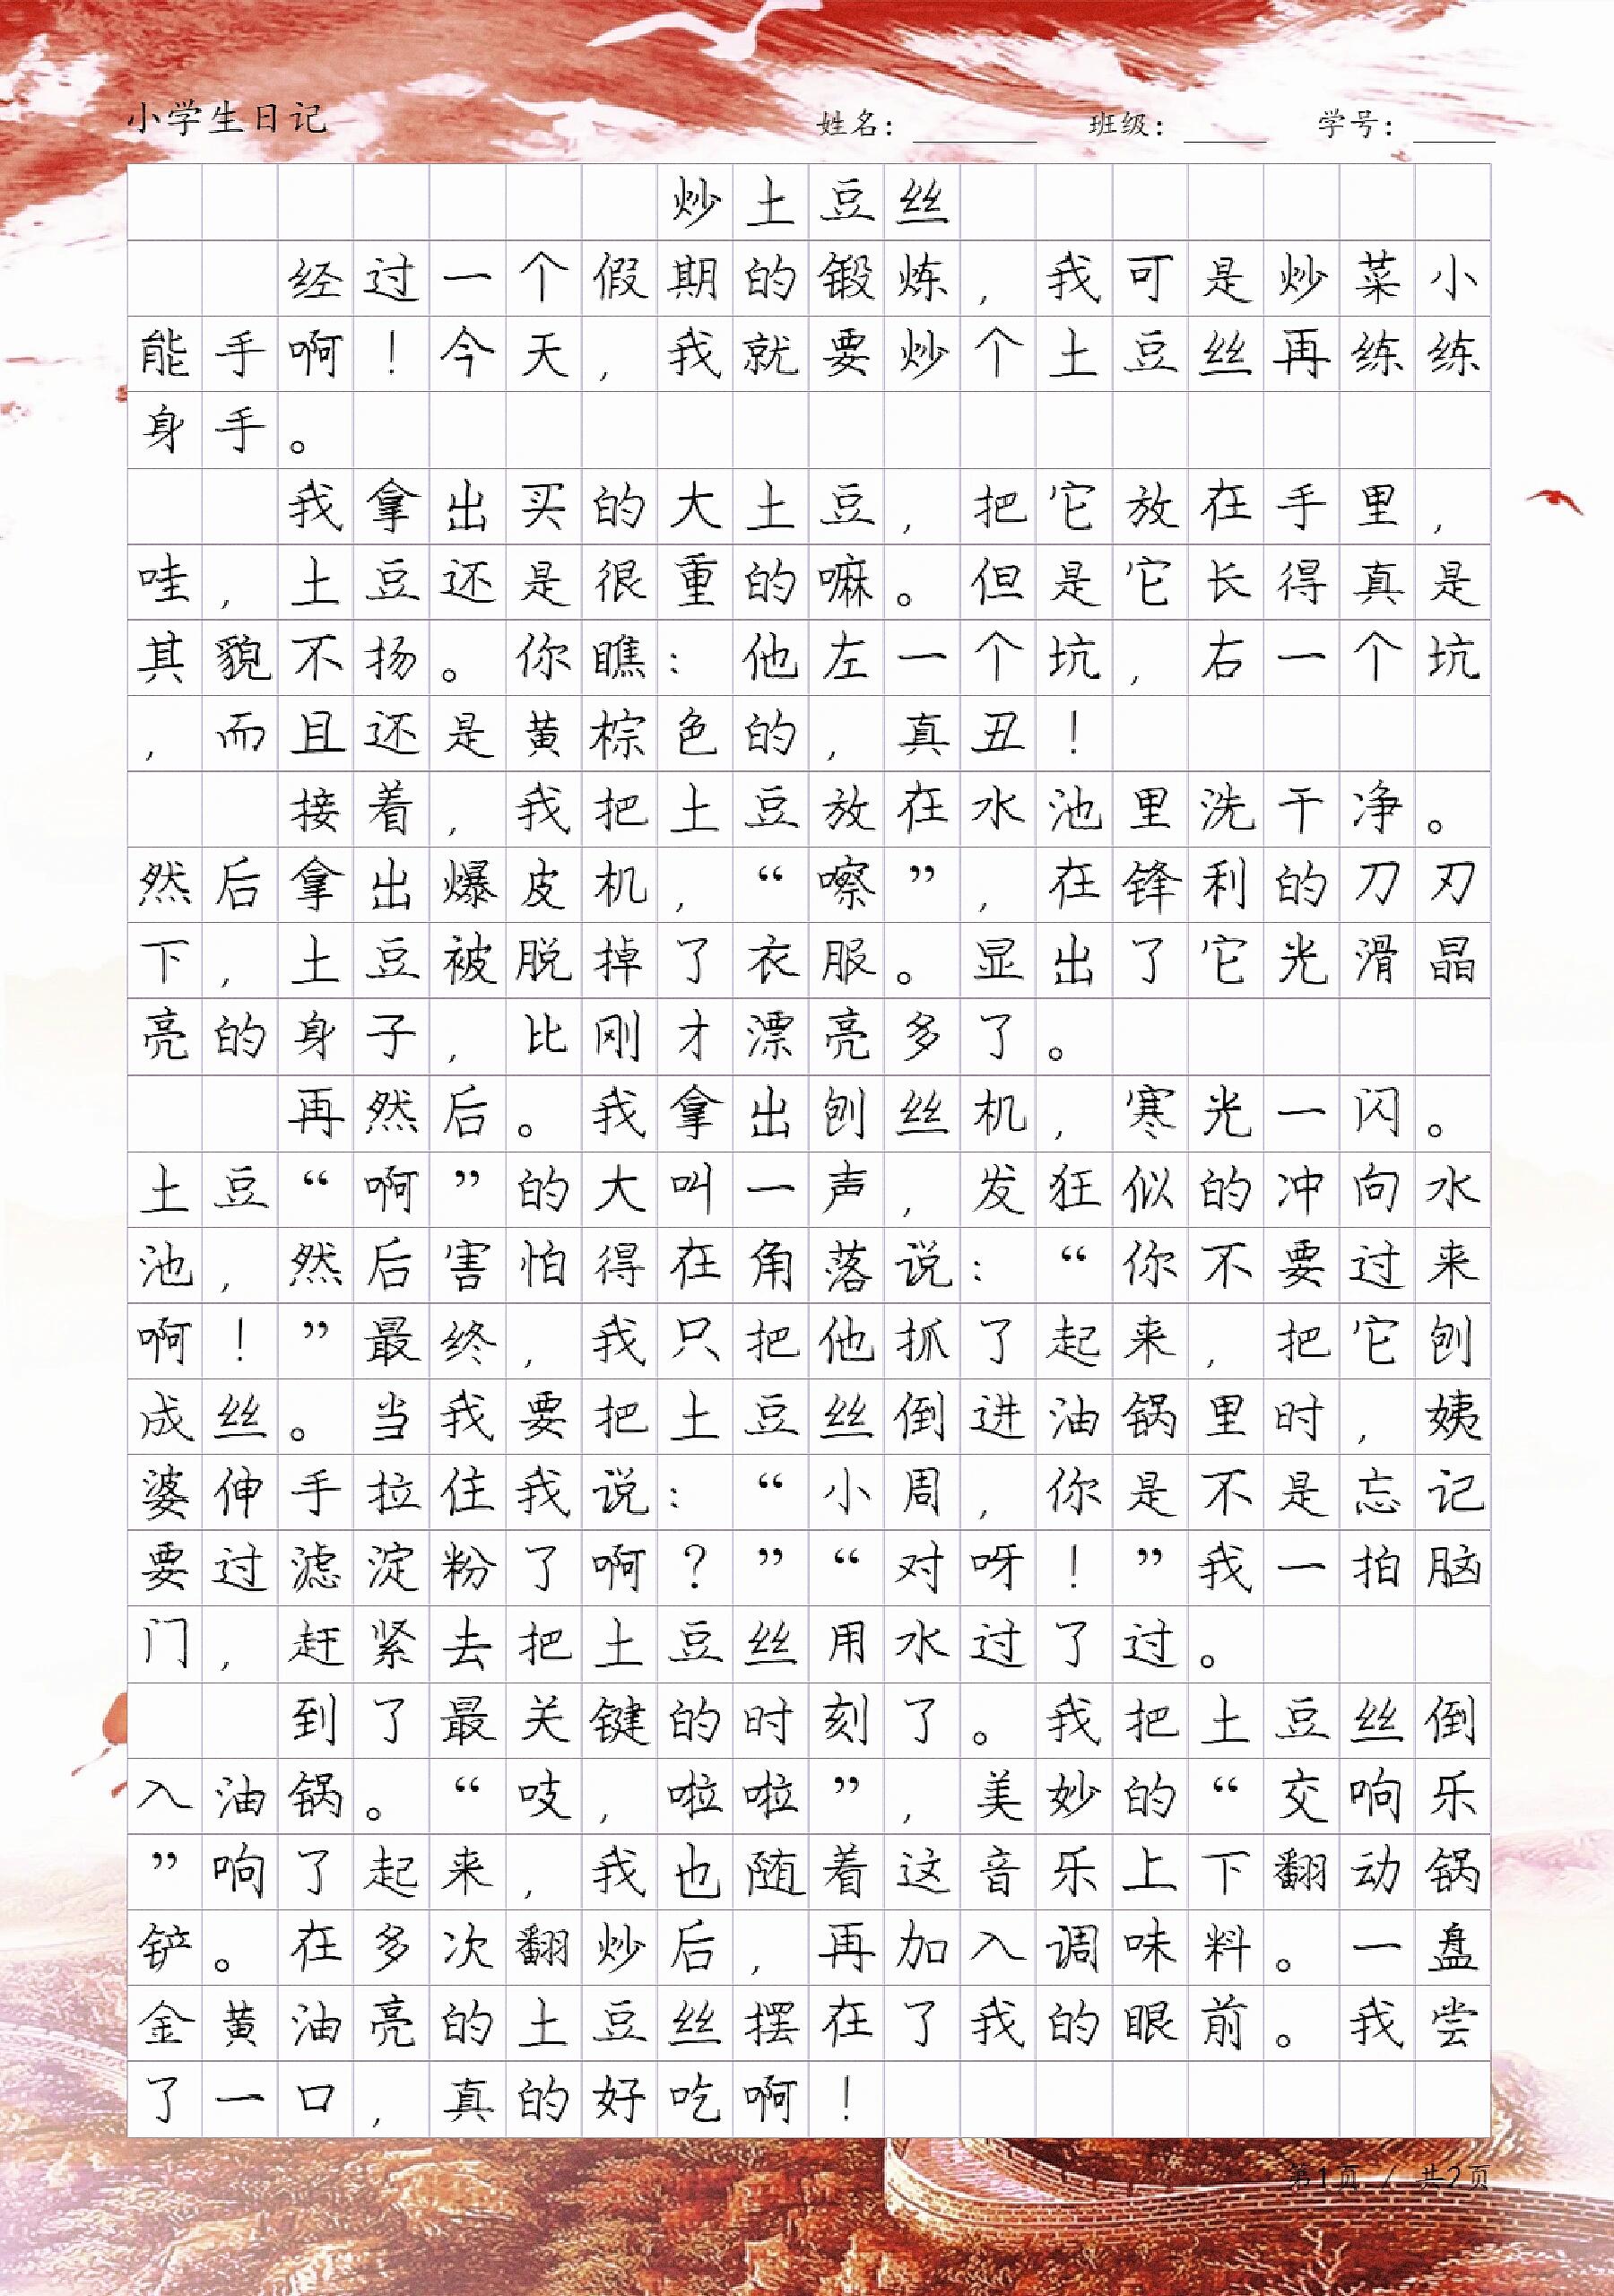 小学生日记
姓名: 班级: 学号:
炒土豆丝
经过一个假期的锻炼，我可是炒菜小
能手啊！今天，我就要炒个土豆丝再练练
身手。
我拿出买的大土豆，把它放在手里，
哇，土豆还是很重的嘛。但是它长得真是
其貌不扬。你瞧：他左一个坑，右一个坑
，而且还是黄棕色的，真丑！
接着，我把土豆放在水池里洗干净。
然后拿出爆皮机，“嚓”，在锋利的刀刃
下，土豆被脱掉了衣服。显出了它光滑晶
亮的身子，比刚才漂亮多了。
再然后。我拿出刨丝机，寒光一闪。
土豆“啊”的大叫一声，发狂似的冲向水
池，然后害怕得在角落说：“你不要过来
啊！”最终，我只把他抓了起来，把它刨
成丝。当我要把土豆丝倒进油锅里时，姨
婆伸手拉住我说：“小周，你是不是忘记
要过滤淀粉了啊？”“对呀！”我一拍脑
门，赶紧去把土豆丝用水过了过。
到了最关键的时刻了。我把土豆丝倒
入油锅。“吱，啦啦”，美妙的“交响乐
”响了起来，我也随着这音乐上下翻动锅
铲。在多次翻炒后，再加入调味料。一盘
金黄油亮的土豆丝摆在了我的眼前。我尝
了一口，真的好吃啊！
第1页 / 共2页